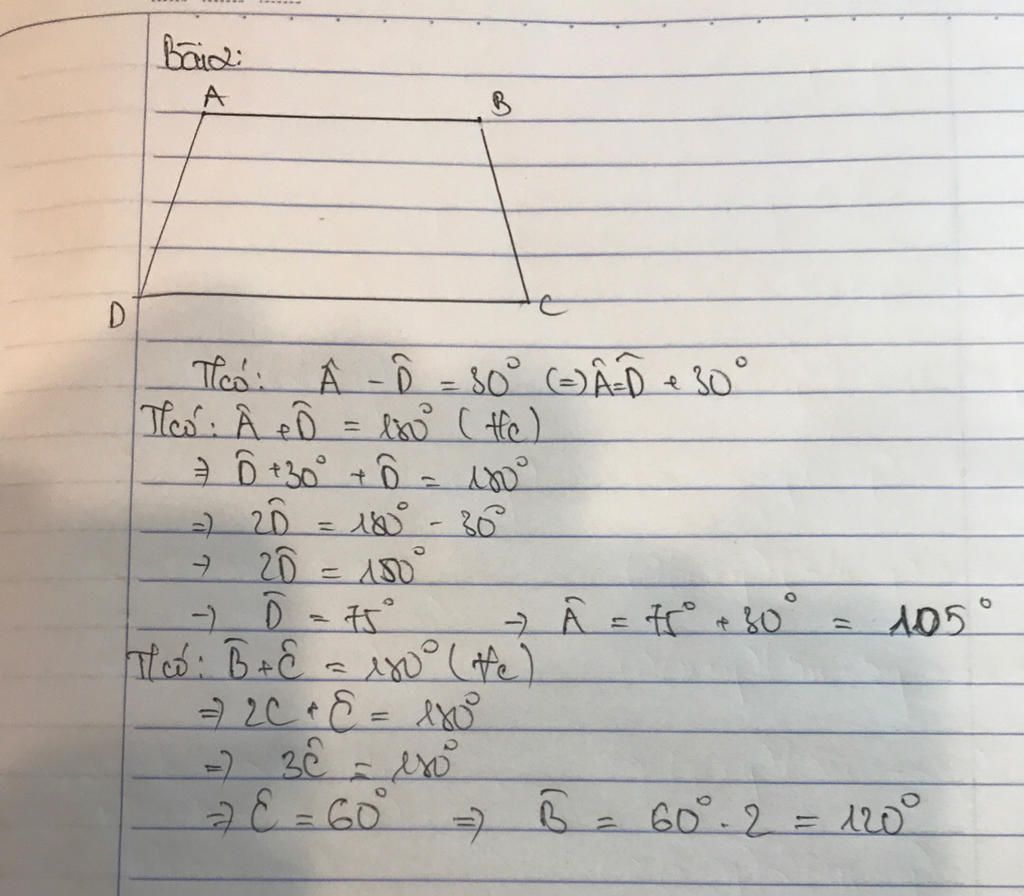 Bài 2:
A
B
D
C
Ta có: Â - D̂ = 30° (=) Â = D̂ + 30°
Ta có: Â + D̂ = 180° (tfc)
=> D̂ + 30° + D̂ = 180°
=> 2D̂ = 180° - 30°
→ 2D̂ = 150°
→ D̂ = 75° → Â = 75° + 30° = 105°
Ta có: B̂ + Ĉ = 180° (tfc)
=> 2C + Ĉ = 180°
=> 3Ĉ = 180°
=> Ĉ = 60° => B̂ = 60° . 2 = 120°